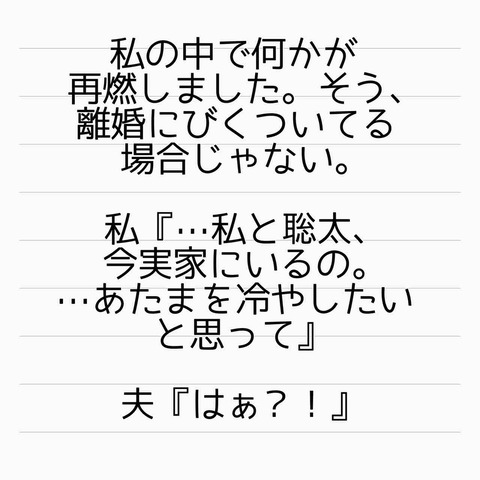 私の中で何かが
再燃しました。そう、
離婚にびくついてる
場合じゃない。
私『…私と聡太、
今実家にいるの。
…あたまを冷やしたい
と思って』
夫『はぁ？！』